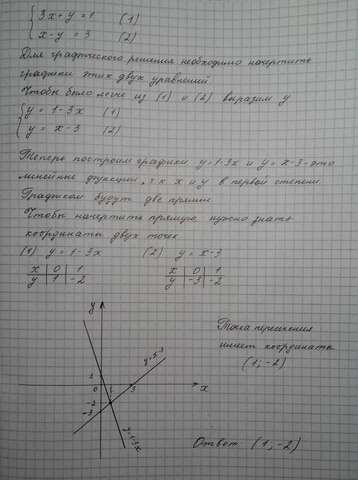 3x + y = 1 (1)
x - y = 3 (2)
Для графического решения необходимо начертить
графики этих двух уравнений
Чтобы было легче из (1) и (2) выразим y
y = 1 - 3x (1)
y = x - 3 (2)
Теперь построим графики y=1-3x и y=x-3 - это
линейные функции, т.к x и y в первой степени.
Графиком будут две прямые
Чтобы начертить прямую нужно знать
координаты двух точек
(1) y = 1-3x (2) y = x-3
x 0 1 x 0 1
y 1 -2 y -3 -2
y
Точка пересечения
имеет координаты
(1; -2)
y=x-3
1
0 1 3 x
-2
-3
y=1-3x
Ответ (1; -2)